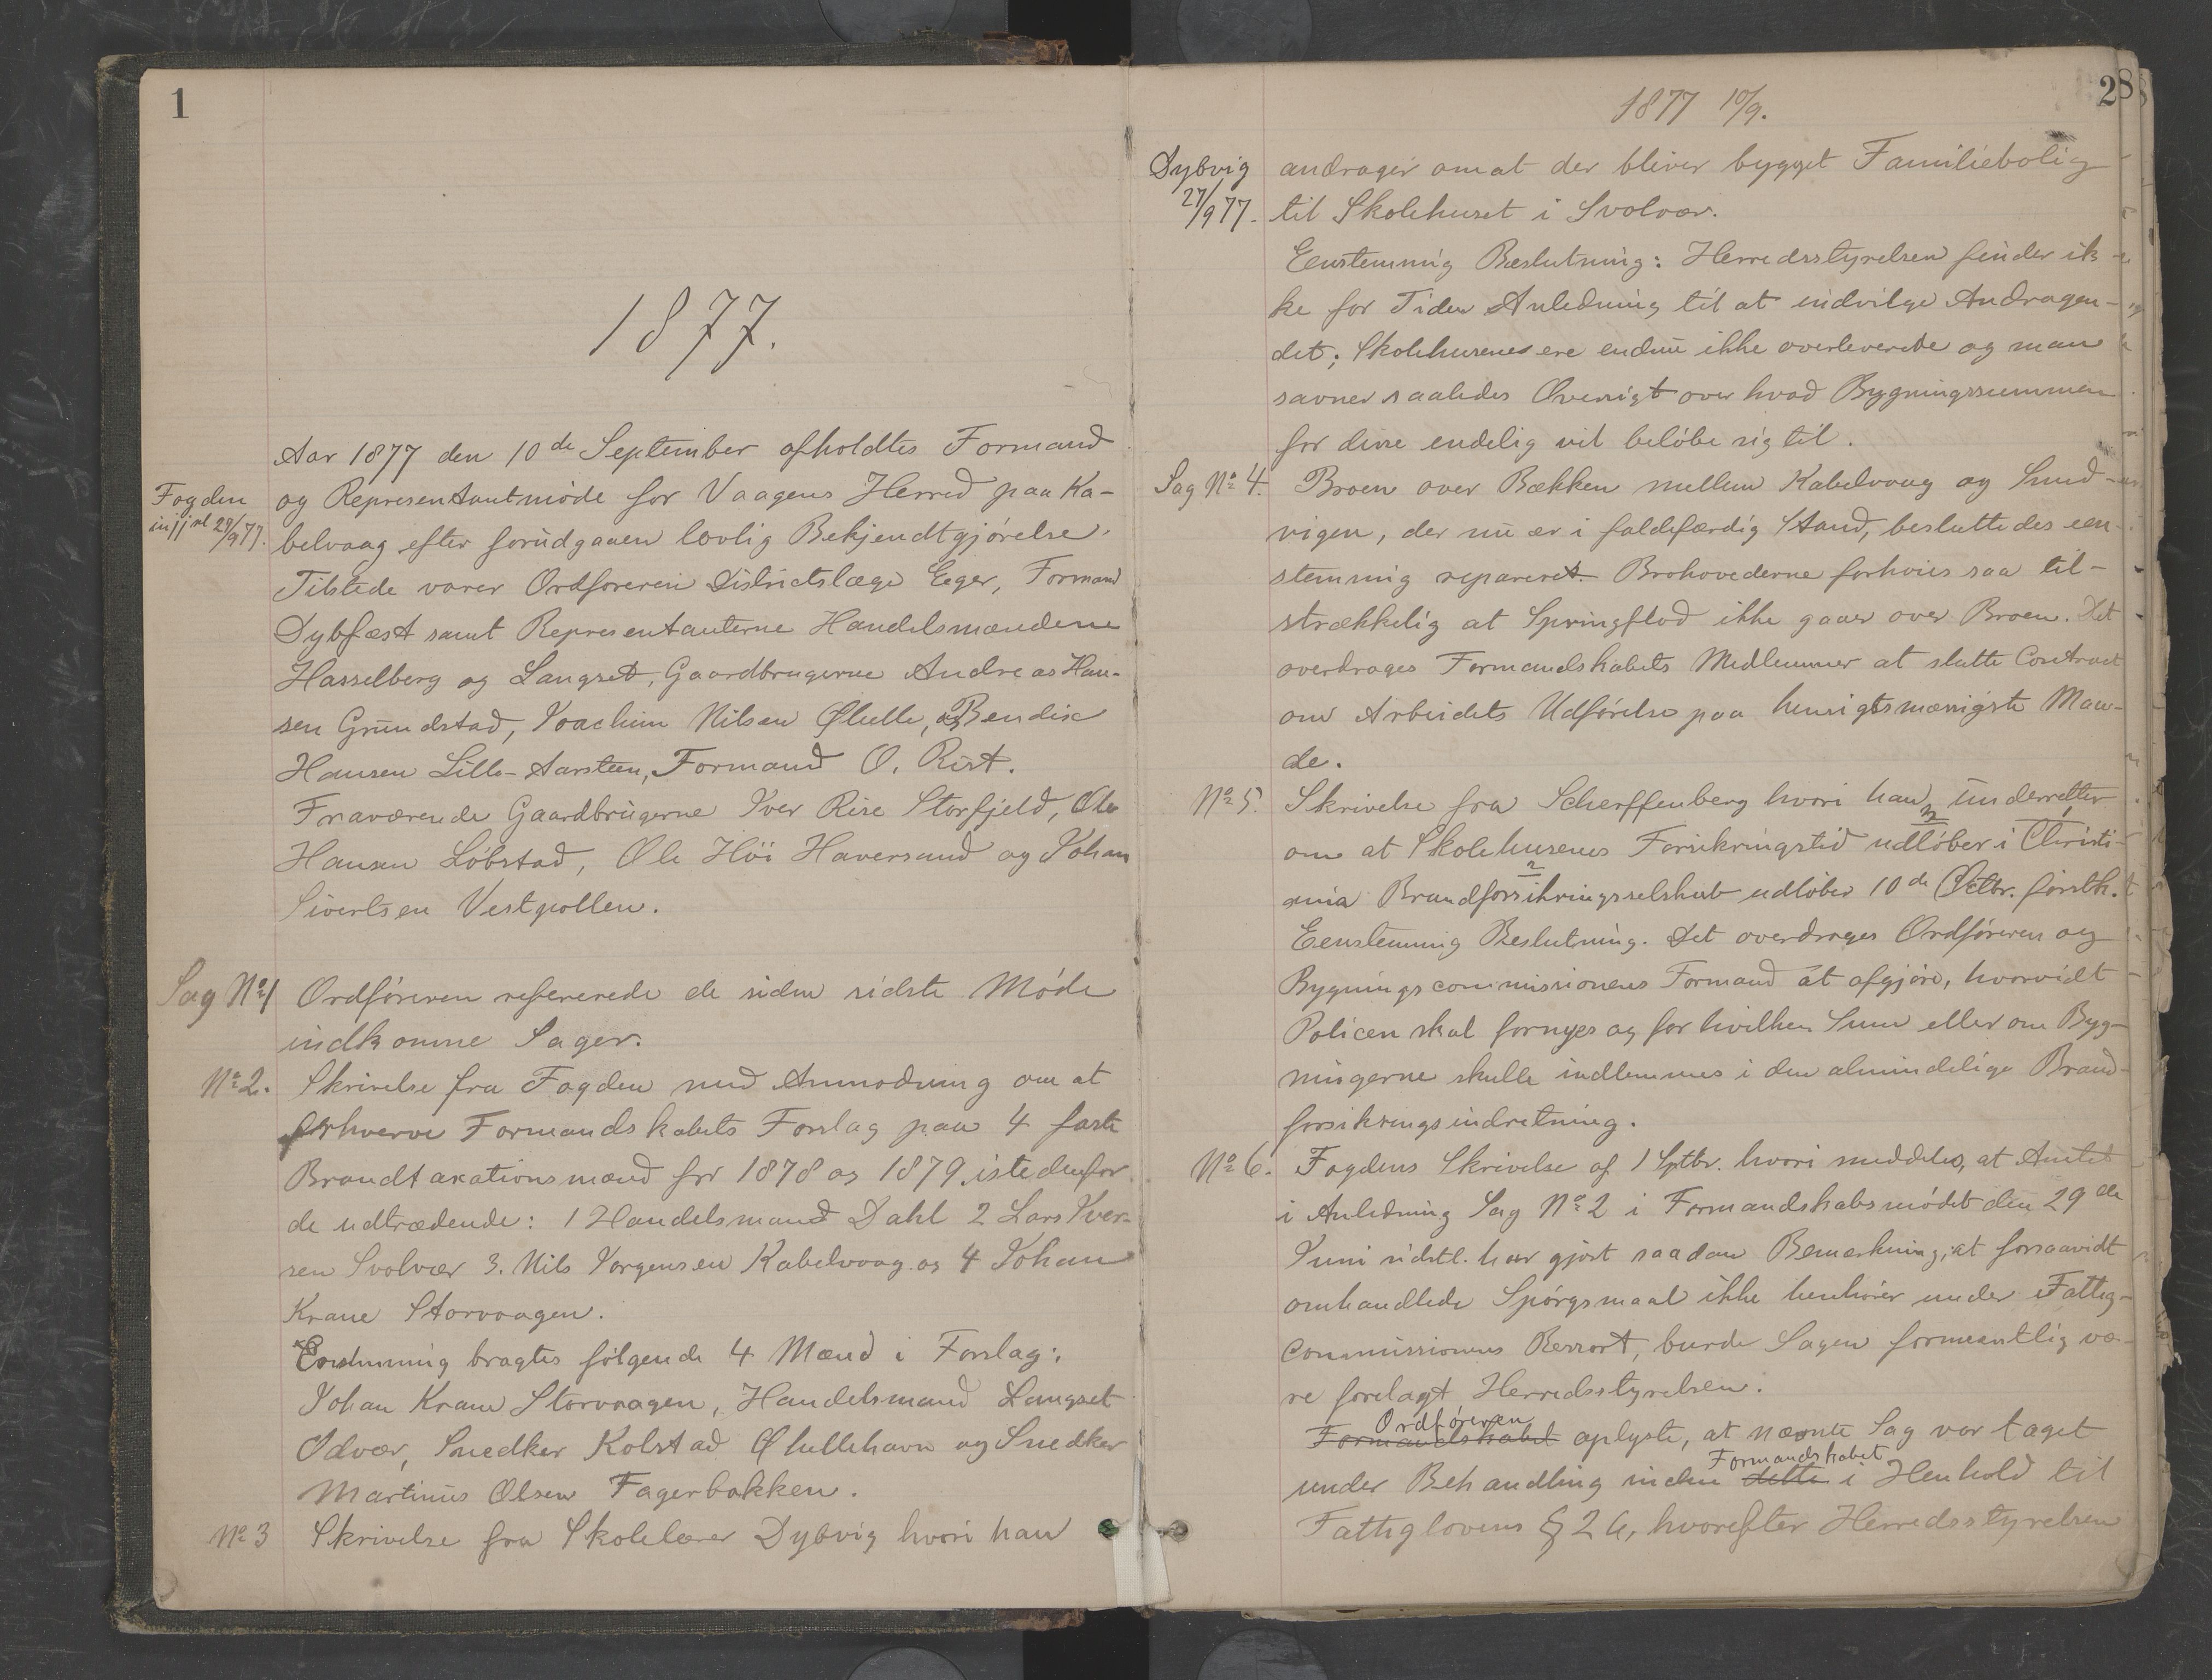 1
1877.
Aar 1877 den 10de September afholdtes Formand
Fogden
injjnl 29/9 77.
og Representantmöde for Vaagens Herred paa Ka-
belvaag efter forudgaaen lovlig Bekjendtgjörelse.
Tilstede varer Ordföreren Distriktslæge Eeger, Formand
Dybfest samt Representanterne Handelsmændene
Hasselberg og Langset, Gaardbrugerne Andreas Han-
sen Grundstad, Joachim Nilsen Ølhelle, og Bendix
Hansen Lille-Aarsteen, Formand O. Rist.
Fraværende Gaardbrugerne Iver Rise Storfjeld, Ole
Hansen Löbstad, Ole Höi Haversand og Johan
Sivertsen Vestpollen.
Sag No 1 Ordföreren refererede de siden sidste Möde
indkomne Sager.
No 2. Skrivelse fra Fogden med Anmodning om at
erhverve Formandskabets Forslag paa 4 faste
Brandtaxationsmænd for 1878 og 1879 istedenfor
de udtrædende: 1 Handelsmand Dahl 2 Lars Iver-
sen Svolvær 3. Nils Jorgensen Kabelvaag og 4 Johan
Krane Storvaagen.
Eenstemmig bragtes fölgende 4 Mænd i Forslag:
Johan Krane Storvaagen, Handelsmand Langset
Odvær, Snedker Kolstad Ølhellehavn og Snedker
Martinus Olsen Fagerbakken.
No 3 Skrivelse fra Skolelærer Dybvig hvori han
2
1877 10/9.
Dybvig
27/9 77.
andrager om at der bliver bygget Familiebolig
til Skolehuset i Svolvær.
Eenstemmig Beslutning: Herredsstyrelsen finder ik-
ke for Tiden Anledning til at indvilge Andragen-
det; Skolehusene ere endnu ikke overleverede og man
savner saaledes Oversigt over hvad Bygningssummen
for disse endelig vil belöbe sig til.
Sag No 4. Broen over Bækken mellem Kabelvaag og Sund-
vigen, der nu er i faldefærdig Stand, besluttedes een-
stemmig repareret. Brohovederne forhöies saa til-
strækkelig at Springflod ikke gaaer over Broen. Det
overdrages Formandskabets Medlemmer at slutte Contract
om Arbeidets Udförelse paa hensigtsmæssigste Maa-
de.
No 5. Skrivelse fra Scharffenberg hvori han underretter
om at Skolehusenes Forsikringstid udlöber i Christi-
ania Brandforsikringsselskab udlöber 10de Octbr. förstk.
Eenstemmig Beslutning. Det overdrages Ordföreren og
Bygningscommissionens Formand at afgjöre, hvorvidt
Policen skal fornyes og for hvilken Sum eller om Byg-
ningerne skulle indlemmes i den almindelige Brand-
forsikringsindretning.
No 6. Fogdens Skrivelse af 1 Sptbr. hvori meddeles, at Amtet
i Anledning Sag No 2 i Formandskabsmödet den 29de
Juni sidstl. har gjort saadan Bemærkning, at forsaavidt
omhandlede Spörgsmaal ikke henhörer under Fattig-
commissionens Ressort, burde Sagen formeentlig væ-
re forelagt Herredsstyrelsen.
Ordföreren
Formandskabet oplyste, at nævnte Sag var taget
Formandskabet
under Behandling inden dette i Henhold til
Fattiglovens § 26, hvorefter Herredsstyrelsen